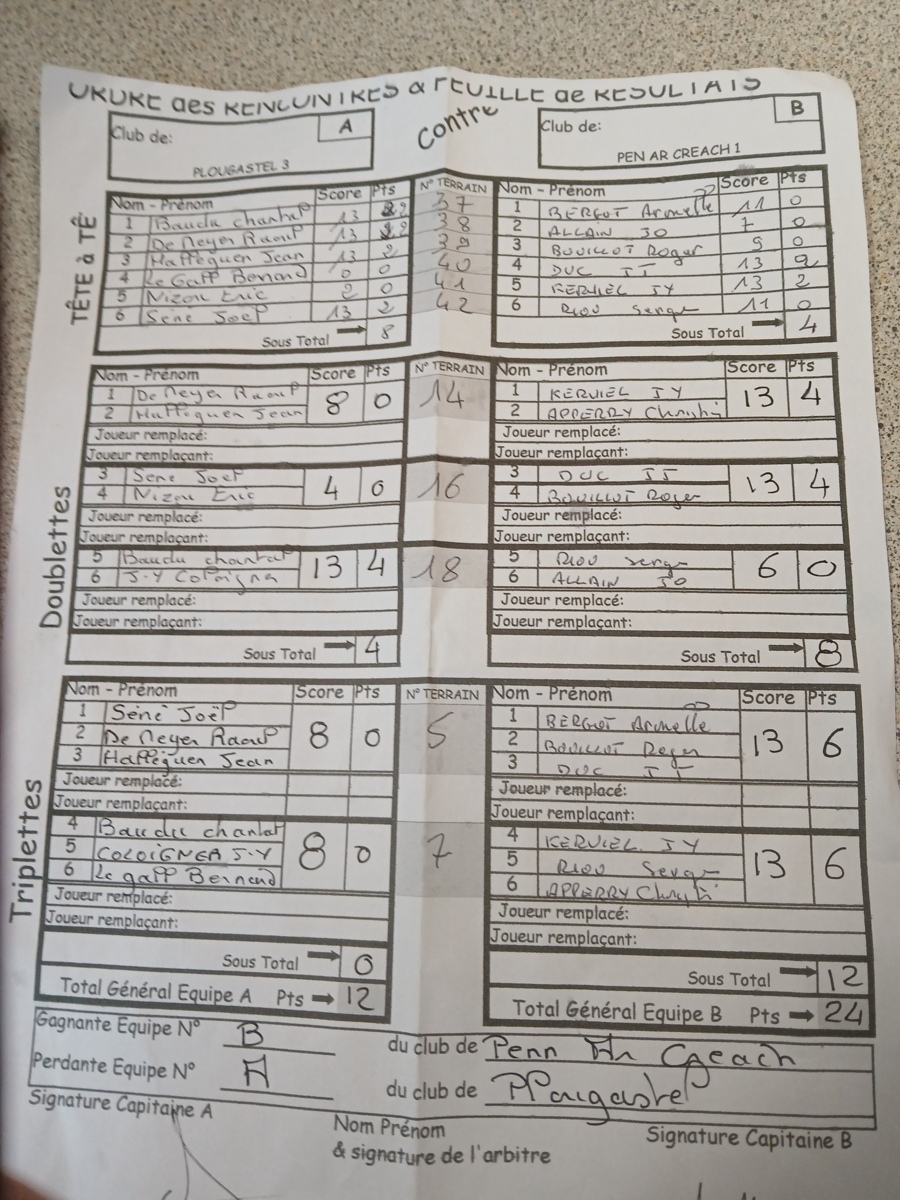 ORDRE des RENCONTRES & FEUILLE de RESULTATS
Club de: A Contre Club de: B
PLOUGASTEL 3 PEN AR CREACH 1
TÊTE à TÊTE
Nom - Prénom Score Pts N° TERRAIN Nom - Prénom Score Pts
1 Baudu chantal 13 2 37 1 BERGOT Armelle 11 0
2 De Neyer Raoul 13 2 38 2 ALLAIN JO 7 0
3 Hafféguen Jean 13 2 39 3 BOUILLOT Roger 9 0
4 Le Gall Bernard 0 0 40 4 DUC JJ 13 2
5 Nizou Eric 2 0 41 5 KERVIEL JY 13 2
6 Séné Joël 13 2 42 6 RIOU Serge 11 0
Sous Total 8 Sous Total 4
Doublettes
Nom - Prénom Score Pts N° TERRAIN Nom - Prénom Score Pts
1 De Neyer Raoul 8 0 14 1 KERVIEL JY 13 4
2 Hafféguen Jean 2 APPERRY Christi
Joueur remplacé: Joueur remplacé:
Joueur remplaçant: Joueur remplaçant:
3 Séné Joël 4 0 16 3 DUC JJ 13 4
4 Nizou Eric 4 BOUILLOT Roger
Joueur remplacé: Joueur remplacé:
Joueur remplaçant: Joueur remplaçant:
5 Baudu chantal 13 4 18 5 RIOU Serge 6 0
6 J-Y Coloigna 6 ALLAIN JO
Joueur remplacé: Joueur remplacé:
Joueur remplaçant: Joueur remplaçant:
Sous Total 4 Sous Total 8
Triplettes
Nom - Prénom Score Pts N° TERRAIN Nom - Prénom Score Pts
1 Séné Joël 1 BERGOT Armelle
2 De Neyer Raoul 8 0 5 2 BOUILLOT Roger 13 6
3 Hafféguen Jean 3 DUC JJ
Joueur remplacé: Joueur remplacé:
Joueur remplaçant: Joueur remplaçant:
4 Baudu chantal 4 KERVIEL JY
5 COLOIGNER J-Y 8 0 7 5 RIOU Serge 13 6
6 Le gall Bernard 6 APPERRY Christi
Joueur remplacé: Joueur remplacé:
Joueur remplaçant: Joueur remplaçant:
Sous Total 0 Sous Total 12
Total Général Equipe A Pts 12 Total Général Equipe B Pts 24
Gagnante Equipe N° B du club de Penn Ar Creach
Perdante Equipe N° A du club de Plougastel
Signature Capitaine A Nom Prénom Signature Capitaine B
& signature de l'arbitre